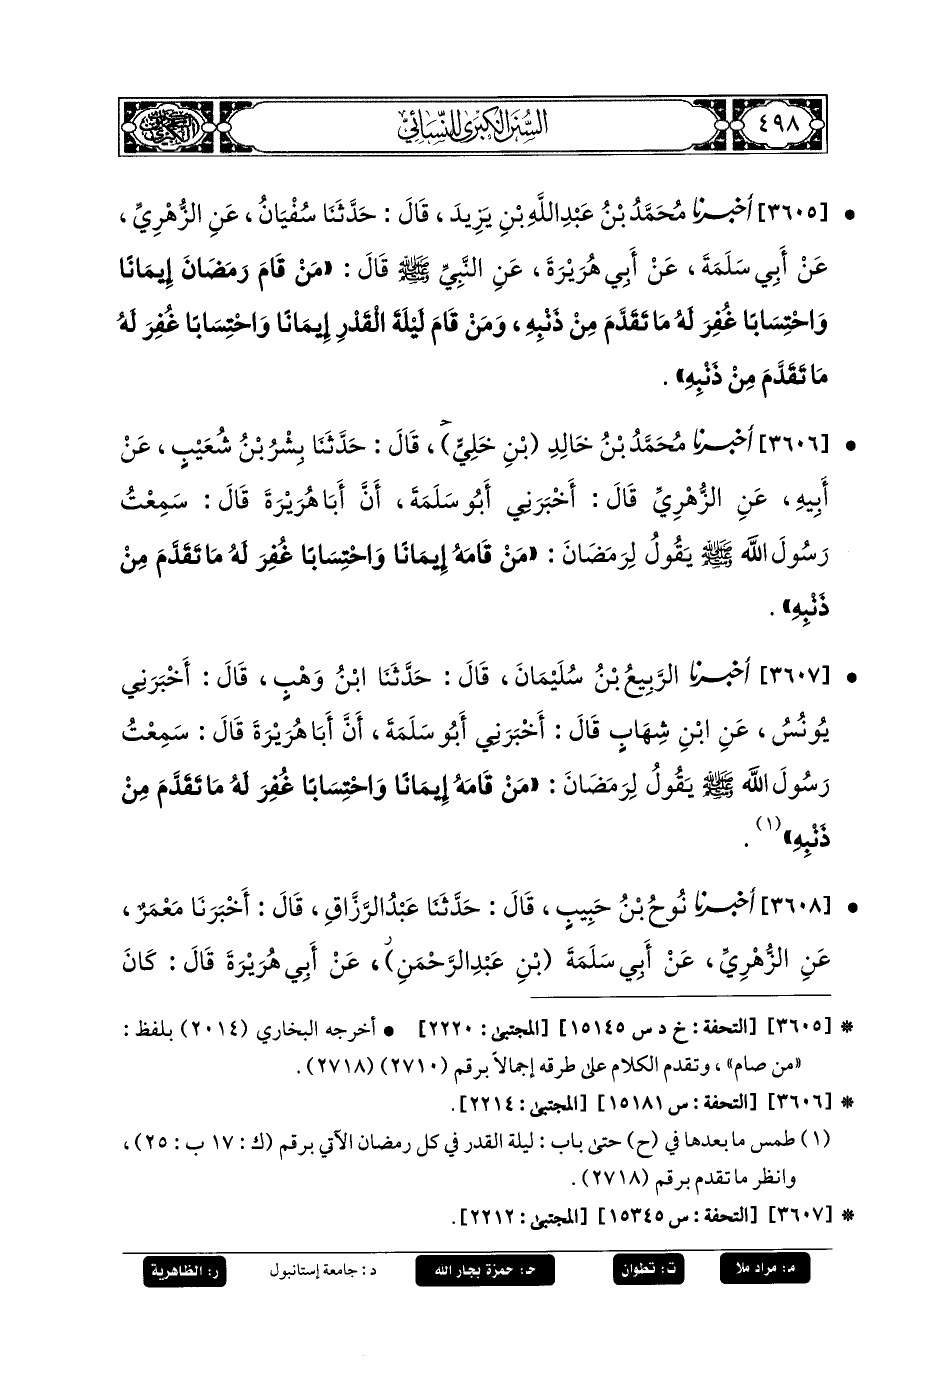 ٤٩٨
السنن الكبرى للنسائي
• [٣٦٠٥] أخبرنا مُحَمَّدُ بْنُ عَبْدِاللَّهِ بْنِ يَزِيدَ ، قَالَ : حَدَّثَنَا سُفْيَانُ ، عَنِ الزُّهْرِيِّ ،
عَنْ أَبِي سَلَمَةَ ، عَنْ أَبِي هُرَيْرَةَ ، عَنِ النَّبِيِّ ﷺ قَالَ : «مَنْ قَامَ رَمَضَانَ إِيمَانًا
وَاحْتِسَابًا غُفِرَ لَهُ مَا تَقَدَّمَ مِنْ ذَنْبِهِ ، وَمَنْ قَامَ لَيْلَةَ الْقَدْرِ إِيمَانًا وَاحْتِسَابًا غُفِرَ لَهُ
مَا تَقَدَّمَ مِنْ ذَنْبِهِ» .
• [٣٦٠٦] أخبرنا مُحَمَّدُ بْنُ خَالِدِ (بْنِ خَلِيٍّ)ح ، قَالَ : حَدَّثَنَا بِشْرُ بْنُ شُعَيْبٍ ، عَنْ
أَبِيهِ ، عَنِ الزُّهْرِيِّ قَالَ : أَخْبَرَنِي أَبُو سَلَمَةَ ، أَنَّ أَبَا هُرَيْرَةَ قَالَ : سَمِعْتُ
رَسُولَ اللَّه ﷺ يَقُولُ لِرَمَضَانَ : «مَنْ قَامَهُ إِيمَانًا وَاحْتِسَابًا غُفِرَ لَهُ مَا تَقَدَّمَ مِنْ
ذَنْبِهِ» .
• [٣٦٠٧] أخبرنا الرَّبِيعُ بْنُ سُلَيْمَانَ ، قَالَ : حَدَّثَنَا ابْنُ وَهْبٍ ، قَالَ : أَخْبَرَنِي
يُونُسُ ، عَنِ ابْنِ شِهَابٍ قَالَ : أَخْبَرَنِي أَبُو سَلَمَةَ ، أَنَّ أَبَا هُرَيْرَةَ قَالَ : سَمِعْتُ
رَسُولَ اللَّه ﷺ يَقُولُ لِرَمَضَانَ : «مَنْ قَامَهُ إِيمَانًا وَاحْتِسَابًا غُفِرَ لَهُ مَا تَقَدَّمَ مِنْ
ذَنْبِهِ»(١) .
• [٣٦٠٨] أخبرنا نُوحُ بْنُ حَبِيبٍ ، قَالَ : حَدَّثَنَا عَبْدُالرَّزَّاقِ ، قَالَ : أَخْبَرَنَا مَعْمَرٌ ،
عَنِ الزُّهْرِيِّ ، عَنْ أَبِي سَلَمَةَ (بْنِ عَبْدِالرَّحْمَنِ)ر ، عَنْ أَبِي هُرَيْرَةَ قَالَ : كَانَ
* [٣٦٠٥] [التحفة : خ د س ١٥١٤٥] [المجتبى : ٢٢٢٠] • أخرجه البخاري (٢٠١٤) بلفظ :
«من صام» ، وتقدم الكلام على طرقه إجمالاً برقم (٢٧١٠) (٢٧١٨) .
* [٣٦٠٦] [التحفة : س ١٥١٨١] [المجتبى : ٢٢١٤] .
(١) طمس ما بعدها في (ح) حتى باب : ليلة القدر في كل رمضان الآتي برقم (ك : ١٧ ب : ٢٥) ،
وانظر ما تقدم برقم (٢٧١٨) .
* [٣٦٠٧] [التحفة : س ١٥٣٤٥] [المجتبى : ٢٢١٢] .
م: مراد ملا ت: تطوان حـ: حمزة بجار الله د: جامعة إستانبول ر: الظاهرية